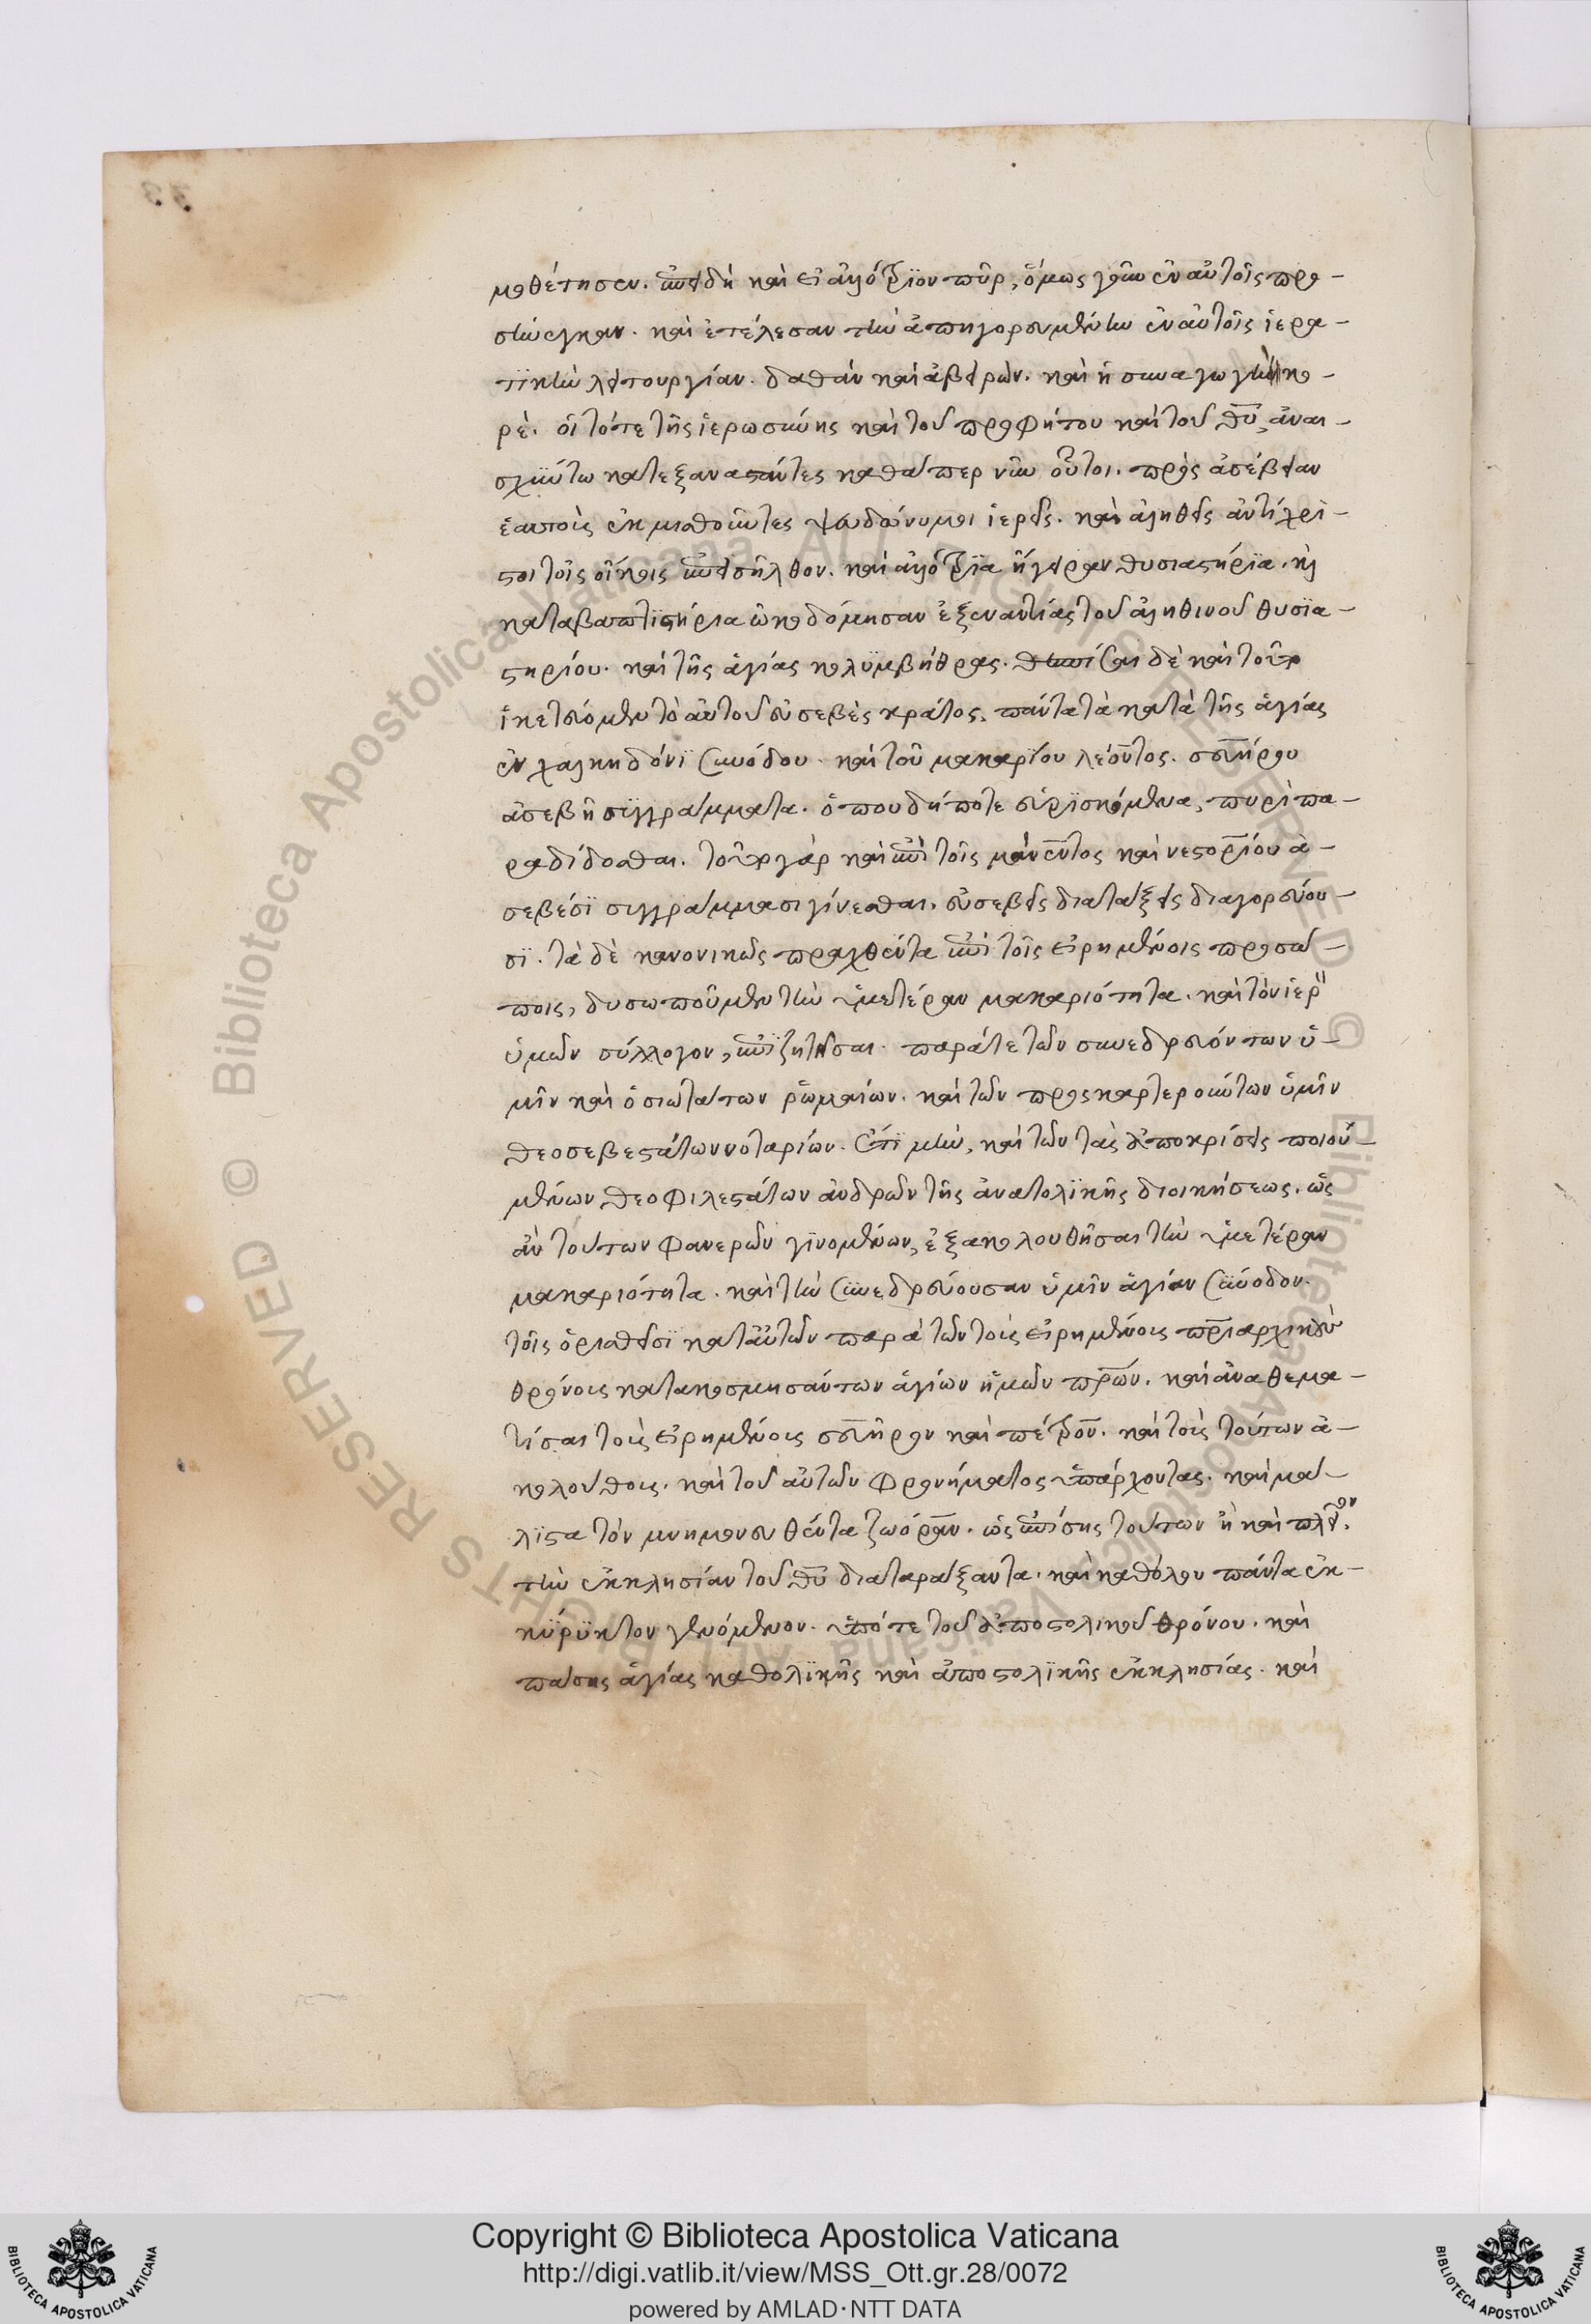 μοθέτησεν. ἐπειδὴ καὶ εἰ ἀλλότριον πῦρ, ὅμως γοῦν ἐν αὐτοῖς προ-
σήνεγκαν. καὶ ἐτέλεσαν τὴν ἀπηγορευμένην ἐν αὐτοῖς ἱερα-
τϊκὴν λειτουργίαν. δαθὰν καὶ ἀβειρὼν. καὶ ἡ συναγωγὴ κο-
ρέ. οἱ τότε τῆς ἱερωσύνης καὶ τοῦ προφήτου καὶ τοῦ θυ, ἀναι-
σχύντω κατεξαναστάντες καθάπερ νῦν οὗτοι. πρὸς ἀσέβειαν
ἑαυτοὺς ἐκμισθοῦντες ψευδώνυμοι ἱερεῖς. καὶ ἀληθεῖς ἀντίχρι-
στοι τοῖς οἴκοις ἐπεισῆλθον. καὶ ἀλλότρϊα ἤγειραν θυσιαστήρϊα. κỳ
καταβαπτϊστήρια ὠκοδόμησαν ἐξεναντίας τοῦ ἀληθινοῦ θυσϊα-
στηρίου. καὶ τῆς ἁγίας κολυμβήθρας. θεσπίσαι δὲ καὶ τοῦτο
ἱκετεύομεν τὸ αὐτοῦ εὐσεβὲς κράτος, πάντα τὰ κατὰ τῆς ἁγίας
ἐν χαλκηδόνϊ συνόδου. καὶ τοῦ μακαρίου λέοντος. σευήρου
ἀσεβῆ συγγράμματα. ὅπου δήποτε εὑρϊσκόμενα, πυρὶ πα-
ραδίδοσθαι. τοῦτο γὰρ καὶ ἐπὶ τοῖς μάνεντος καὶ νεστορίου ἀ-
σεβέσϊ συγγράμμασι γίνεσθαι. εὐσεβεῖς διατάξεις διαγορεύου-
σϊ. τὰ δὲ κανονικῶς πραχθέντα ἐπὶ τοῖς εἰρημένοις προσώ-
ποις, δυσωποῦμεν τὴν ὑμετέραν μακαριότητα. καὶ τὸν ἱερὸν
ὑμῶν σύλλογον, ἐπϊζητῆσαι. παρά τε τῶν συνεδρευόντων ὑ-
μῖν καὶ ὁσιωτάτων ῥωμαίων. καὶ τῶν προςκαρτερούντων ὑμῖν
θεοσεβεστάτων νοταρίων. ἔτϊ μὴν, καὶ τῶν τὰς ἀποκρίσεις ποιού-
μένων θεοφιλεστάτων ἀνδρῶν τῆς ἀνατολϊκῆς διοικήσεως. ὡς
ἀν τούτων φανερῶν γϊνομένων, ἐξακολουθῆσαι τὴν ὑμετέραν
μακαριότητα. καὶ τὴν συνεδρεύουσαν ὑμῖν ἁγίαν σύνοδον.
τοῖς ὁρισθεῖσϊ κατ' αὐτῶν παρὰ τῶν τοὺς εἰρημένους πριαρχικοὺς
θρόνους κατακοσμησάντων ἁγίων ἡμῶν πρων. καὶ ἀναθεμα-
τίσαι τοὺς εἰρημένους σευῆρον καὶ πέτρον. καὶ τοὺς τούτων ἀ-
κολούθους. καὶ τοῦ αὐτῶν φρονήματος ὑπάρχοντας. καὶ μά-
λϊστα τὸν μνημονευθέντα ζωόραν. ὡς ἐπίσης τούτων ἢ καὶ πλεῖον,
τὴν ἐκκλησίαν τοῦ θυ διαταράξαντα. καὶ καθόλου πάντα ἐκ-
κήρϋκτον γενόμενον. ὑπό τε τοῦ ἀποστολικοῦ θρόνου. καὶ
πάσης ἁγίας καθολϊκῆς καὶ ἀποστολϊκῆς ἐκκλησίας. καὶ
© Biblioteca Apostolica Vaticana ALL RIGHTS RESERVED
Copyright © Biblioteca Apostolica Vaticana
http://digi.vatlib.it/view/MSS_Ott.gr.28/0072
powered by AMLAD·NTT DATA
BIBLIOTECA APOSTOLICA VATICANA
BIBLIOTECA APOSTOLICA VATICANA